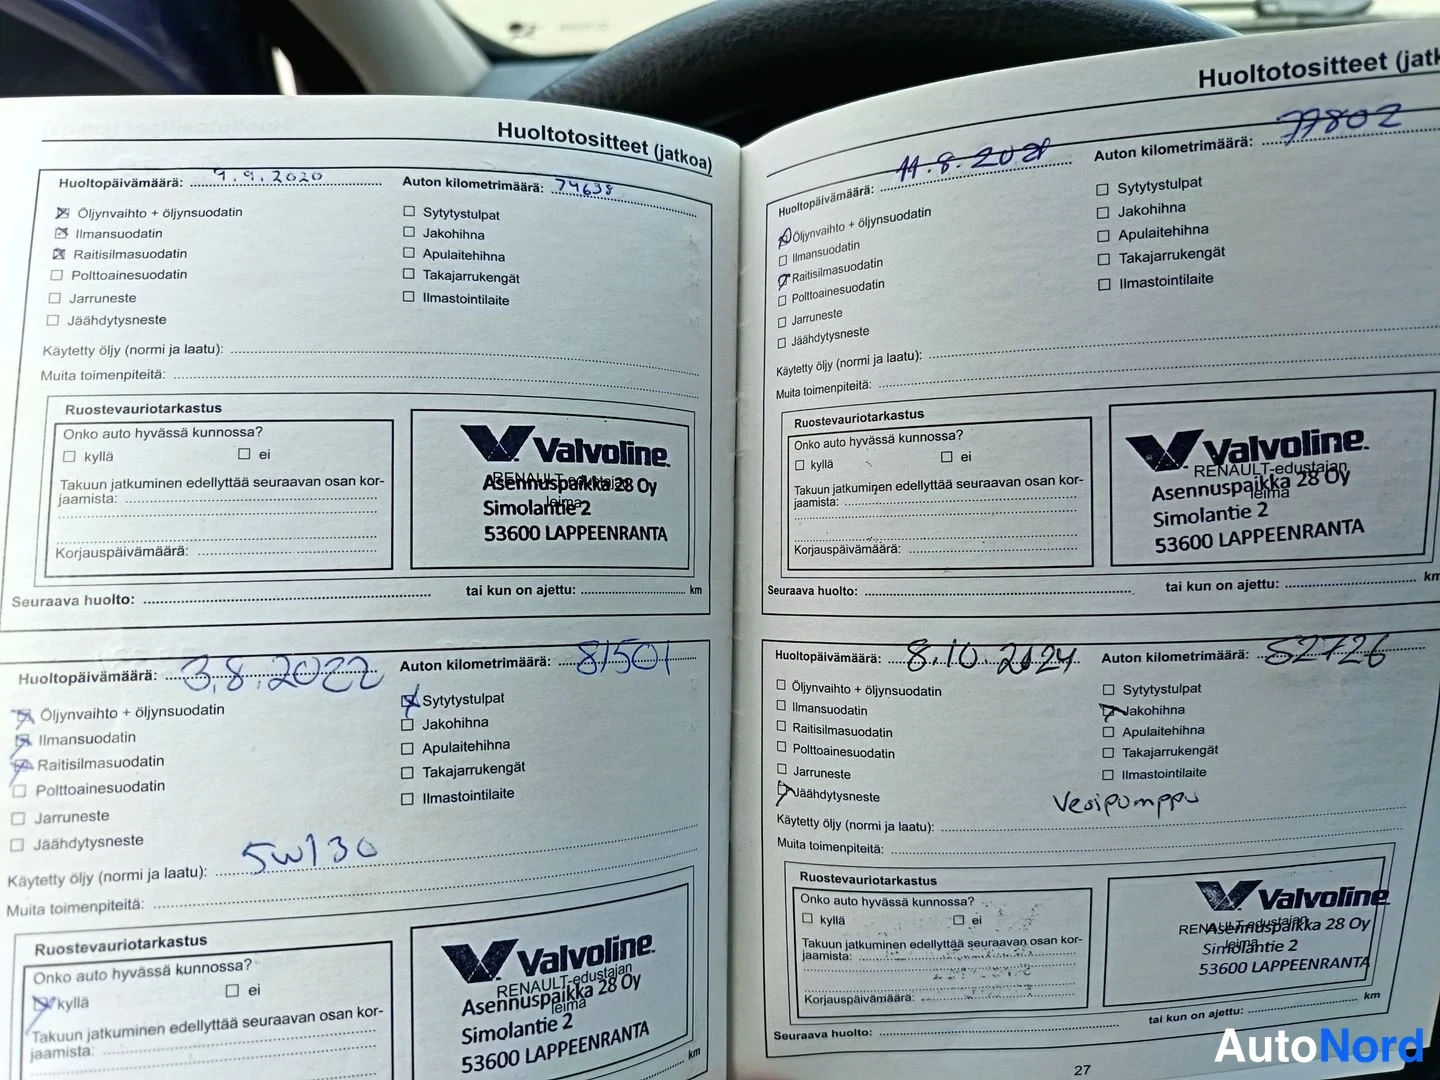 Huoltotositteet (jatkoa)
Huoltopäivämäärä: 9.9.2020 Auton kilometrimäärä: 74638
Öljynvaihto + öljynsuodatin
Ilmansuodatin
Raitisilmasuodatin
Polttoainesuodatin
Jarruneste
Jäähdytysneste
Sytytystulpat
Jakohihna
Apulaitehihna
Takajarrukengät
Ilmastointilaite
Käytetty öljy (normi ja laatu):
Muita toimenpiteitä:
Ruostevauriotarkastus
Onko auto hyvässä kunnossa?
kyllä ei
Takuun jatkuminen edellyttää seuraavan osan kor-
jaamista:
Korjauspäivämäärä:
Valvoline
RENAULT-edustajan
leima
Asennuspaikka 28 Oy
Simolantie 2
53600 LAPPEENRANTA
Seuraava huolto: tai kun on ajettu: km
Huoltopäivämäärä: 3.8.2022 Auton kilometrimäärä: 81501
Öljynvaihto + öljynsuodatin
Ilmansuodatin
Raitisilmasuodatin
Polttoainesuodatin
Jarruneste
Jäähdytysneste
Sytytystulpat
Jakohihna
Apulaitehihna
Takajarrukengät
Ilmastointilaite
Käytetty öljy (normi ja laatu): 5w130
Muita toimenpiteitä:
Ruostevauriotarkastus
Onko auto hyvässä kunnossa?
kyllä ei
Takuun jatkuminen edellyttää seuraavan osan kor-
jaamista:
Valvoline
RENAULT-edustajan
leima
Asennuspaikka 28 Oy
Simolantie 2
53600 LAPPEENRANTA
km
Huoltotositteet (jatk
Huoltopäivämäärä: 11.8.2021 Auton kilometrimäärä: 77802
Öljynvaihto + öljynsuodatin
Ilmansuodatin
Raitisilmasuodatin
Polttoainesuodatin
Jarruneste
Jäähdytysneste
Sytytystulpat
Jakohihna
Apulaitehihna
Takajarrukengät
Ilmastointilaite
Käytetty öljy (normi ja laatu):
Muita toimenpiteitä:
Ruostevauriotarkastus
Onko auto hyvässä kunnossa?
kyllä ei
Takuun jatkuminen edellyttää seuraavan osan kor-
jaamista:
Korjauspäivämäärä:
Valvoline
RENAULT-edustajan
leima
Asennuspaikka 28 Oy
Simolantie 2
53600 LAPPEENRANTA
Seuraava huolto: tai kun on ajettu: km
Huoltopäivämäärä: 8.10.2024 Auton kilometrimäärä: 82726
Öljynvaihto + öljynsuodatin
Ilmansuodatin
Raitisilmasuodatin
Polttoainesuodatin
Jarruneste
Jäähdytysneste
Sytytystulpat
Jakohihna
Apulaitehihna
Takajarrukengät
Ilmastointilaite
Vesipumppu
Käytetty öljy (normi ja laatu):
Muita toimenpiteitä:
Ruostevauriotarkastus
Onko auto hyvässä kunnossa?
kyllä ei
Takuun jatkuminen edellyttää seuraavan osan kor-
jaamista:
Korjauspäivämäärä:
Valvoline
RENAULT-edustajan
leima
Asennuspaikka 28 Oy
Simolantie 2
53600 LAPPEENRANTA
Seuraava huolto: tai kun on ajettu: km
27
AutoNord